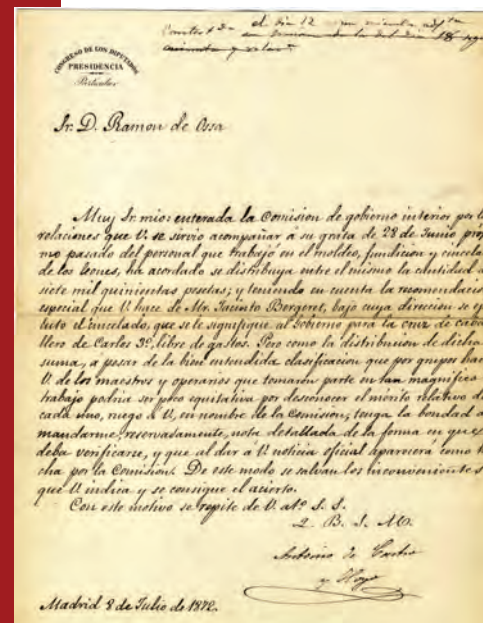 Contest.do el dia 12
CONGRESO DE LOS DIPUTADOS
PRESIDENCIA
Particular
Sr. D. Ramon de Ossa
Muy Sr. mio: enterada la Comision de gobierno interior por l
relaciones que V. se sirvió acompañar á su grata de 28 de Junio próx
mo pasado del personal que trabajó en el moldeo, fundicion y cincela
de los leones, ha acordado se distribuya entre el mismo la cantidad d
siete mil quinientas pesetas; y teniendo en cuenta la recomendacio
especial que V. hace de Mr. Jacinto Bergeret, bajo cuya direccion se ej
cutó el cincelado, que se le signifique al Gobierno para la cruz de caba
llero de Carlos 3º, libre de gastos. Pero como la distribucion de dicha
suma, a pesar de la bien entendida clasificacion que por grupos hac
V. de los maestros y operarios que tomaron parte en tan magnifico
trabajo podria ser poco equitativa por desconocer el mérito relativo d
cada uno, ruego á V., en nombre de la Comision, tenga la bondad d
mandarme, reservadamente, nota detallada de la forma en que
deba verificarse, y que al dar á V. noticia oficial aparecerá como h
cha por la Comision. De este modo se salvan los inconvenientes
que V. indica y se consigue el acierto.
Con este motivo se repite de V. at.º S. S.
Q. B. S. M.
Antonio de Castro
y Hoyo
Madrid 8 de Julio de 1872.